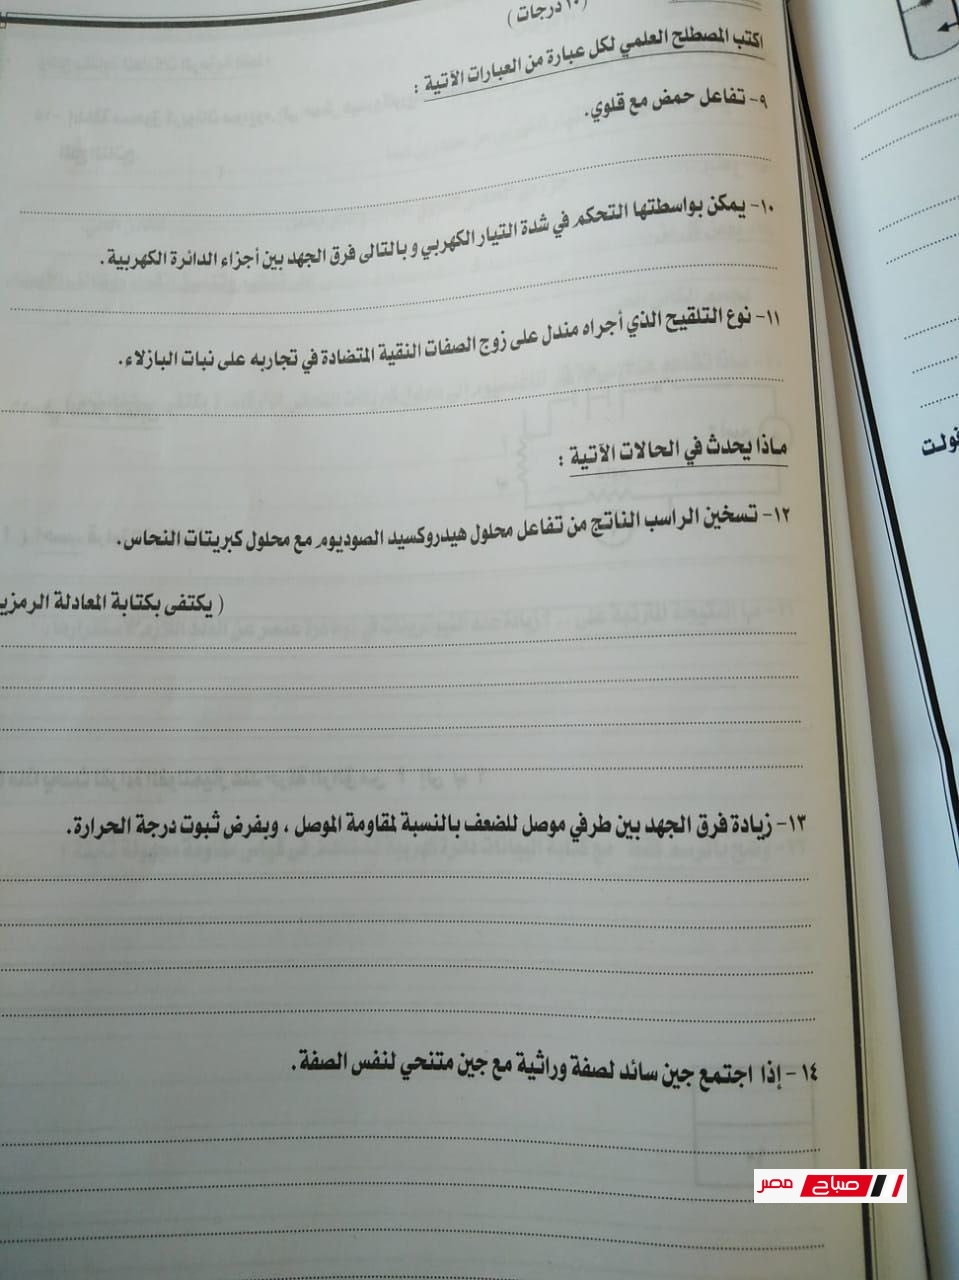 (١٠ درجات)
اكتب المصطلح العلمي لكل عبارة من العبارات الآتية :
٩- تفاعل حمض مع قلوي.
١٠- يمكن بواسطتها التحكم في شدة التيار الكهربي وبالتالى فرق الجهد بين أجزاء الدائرة الكهربية.
١١- نوع التلقيح الذي أجراه مندل على زوج الصفات النقية المتضادة في تجاربه على نبات البازلاء.
ماذا يحدث في الحالات الآتية :
١٢- تسخين الراسب الناتج من تفاعل محلول هيدروكسيد الصوديوم مع محلول كبريتات النحاس.
( يكتفى بكتابة المعادلة
١٣- زيادة فرق الجهد بين طرفي موصل للضعف بالنسبة لمقاومة الموصل ، وبفرض ثبوت درجة الحرارة.
١٤- إذا اجتمع جين سائد لصفة وراثية مع جين متنحي لنفس الصفة.
صباح مصر